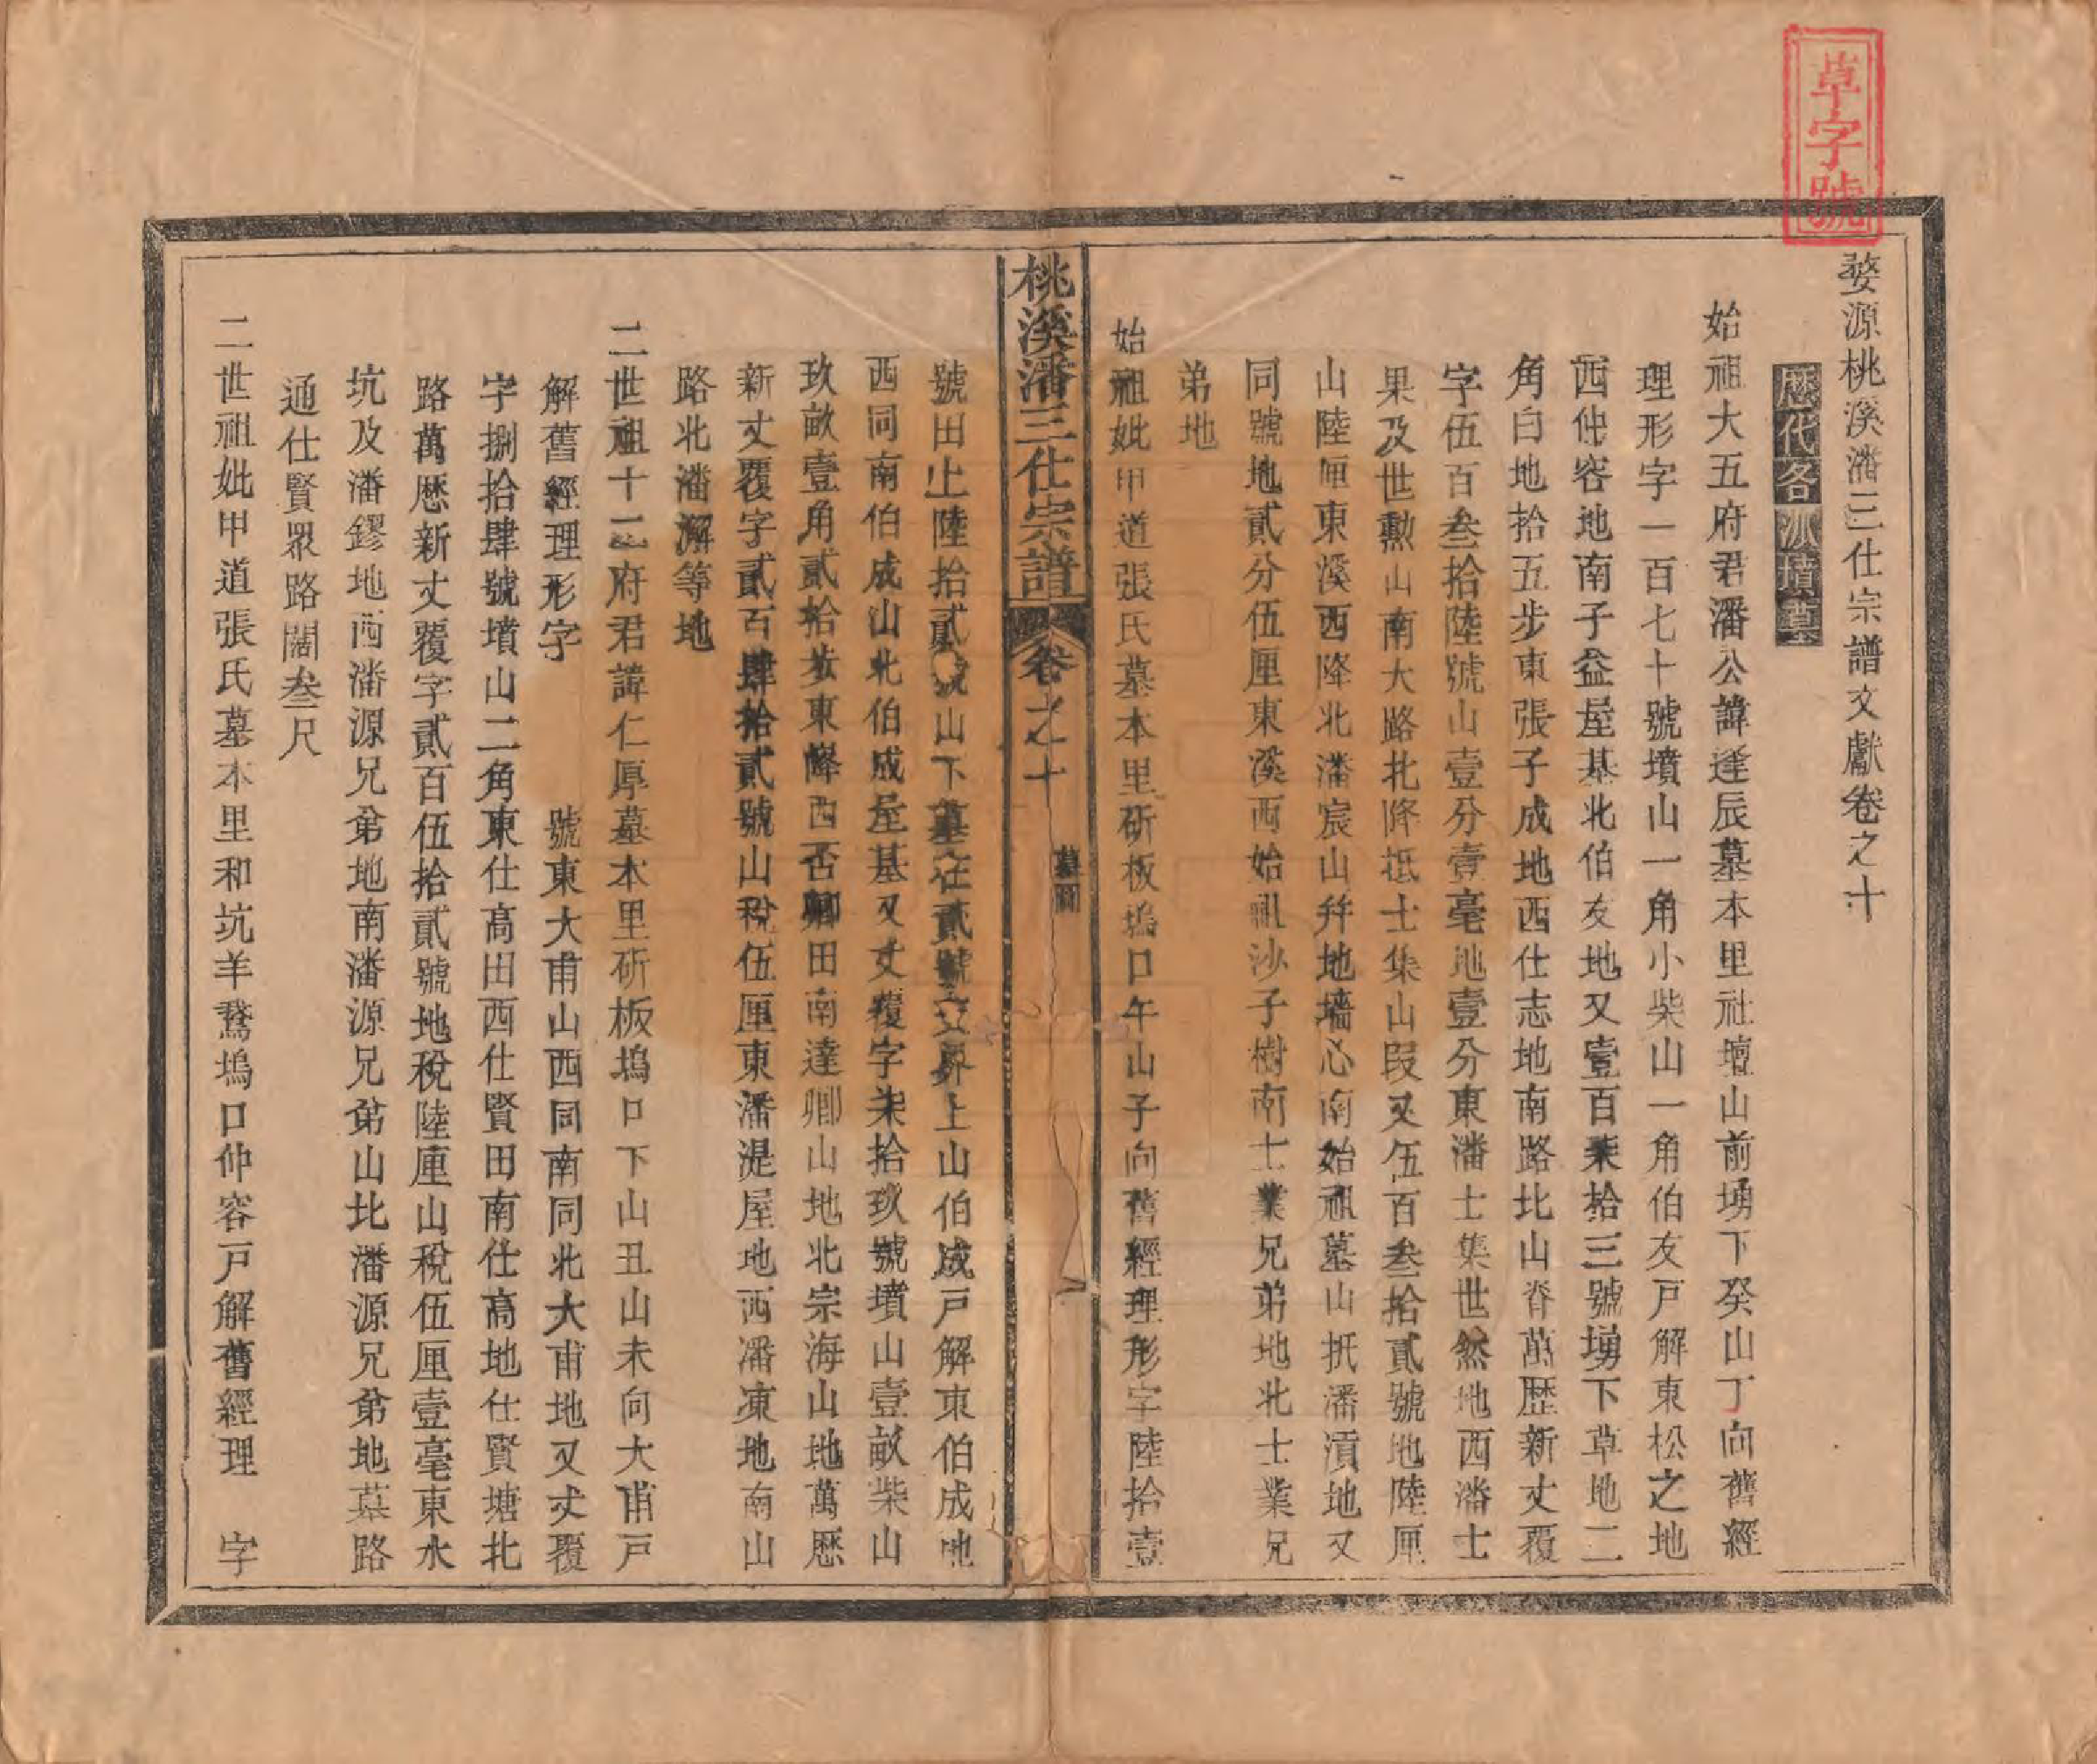 草字號
婺源桃溪潘三仕宗譜文獻卷之十
歷代各派墳墓
始祖大五府君潘公諱逢辰墓本里社壇山前塝下癸山丁向舊經
理形字一百七十號墳山一角小柴山一角伯友戶解東松之地
西仲容地南子益屋基北伯友地又壹百柒拾三號塝下草地二
角白地拾五步東張子成地西仕志地南路北山脊萬歷新丈覆
字伍百叁拾陸號山壹分壹毫地壹分東潘士集世然地西潘士
果及世勲山南大路北降抵士集山叚又伍百叁拾貳號地陸厘
山陸厘東溪西降北潘宸山幷地墻心南始祖墓山抵潘濆地又
同號地貳分伍厘東溪西始祖沙子樹南士業兄弟地北士業兄
弟地
始祖妣甲道張氏墓本里硏板塢口午山子向舊經理形字陸拾壹
桃溪潘三仕宗譜
卷之十
墓圖
一
號田上陸拾貳號山下墓在貳號交界上山伯成戶解東伯成地
西同南伯成山北伯成屋基又丈覆字柒拾玖號墳山壹畝柴山
玖畝壹角貳拾步東降西舌卿田南達卿山地北宗海山地萬歷
新丈覆字貳百肆拾貳號山稅伍厘東潘湜屋地西潘凍地南山
路北潘澥等地
二世祖十三府君諱仁厚墓本里硏板塢口下山丑山未向大甫戶
解舊經理形字　　號東大甫山西同南同北大甫地又丈覆
字捌拾肆號墳山二角東仕高田西仕賢田南仕高地仕賢塘北
路萬歷新丈覆字貳百伍拾貳號地稅陸厘山稅伍厘壹毫東水
坑及潘鏐地西潘源兄弟地南潘源兄弟山北潘源兄弟地墓路
通仕賢衆路闊叁尺
二世祖妣甲道張氏墓本里和坑羊鵞塢口仲容戶解舊經理　字